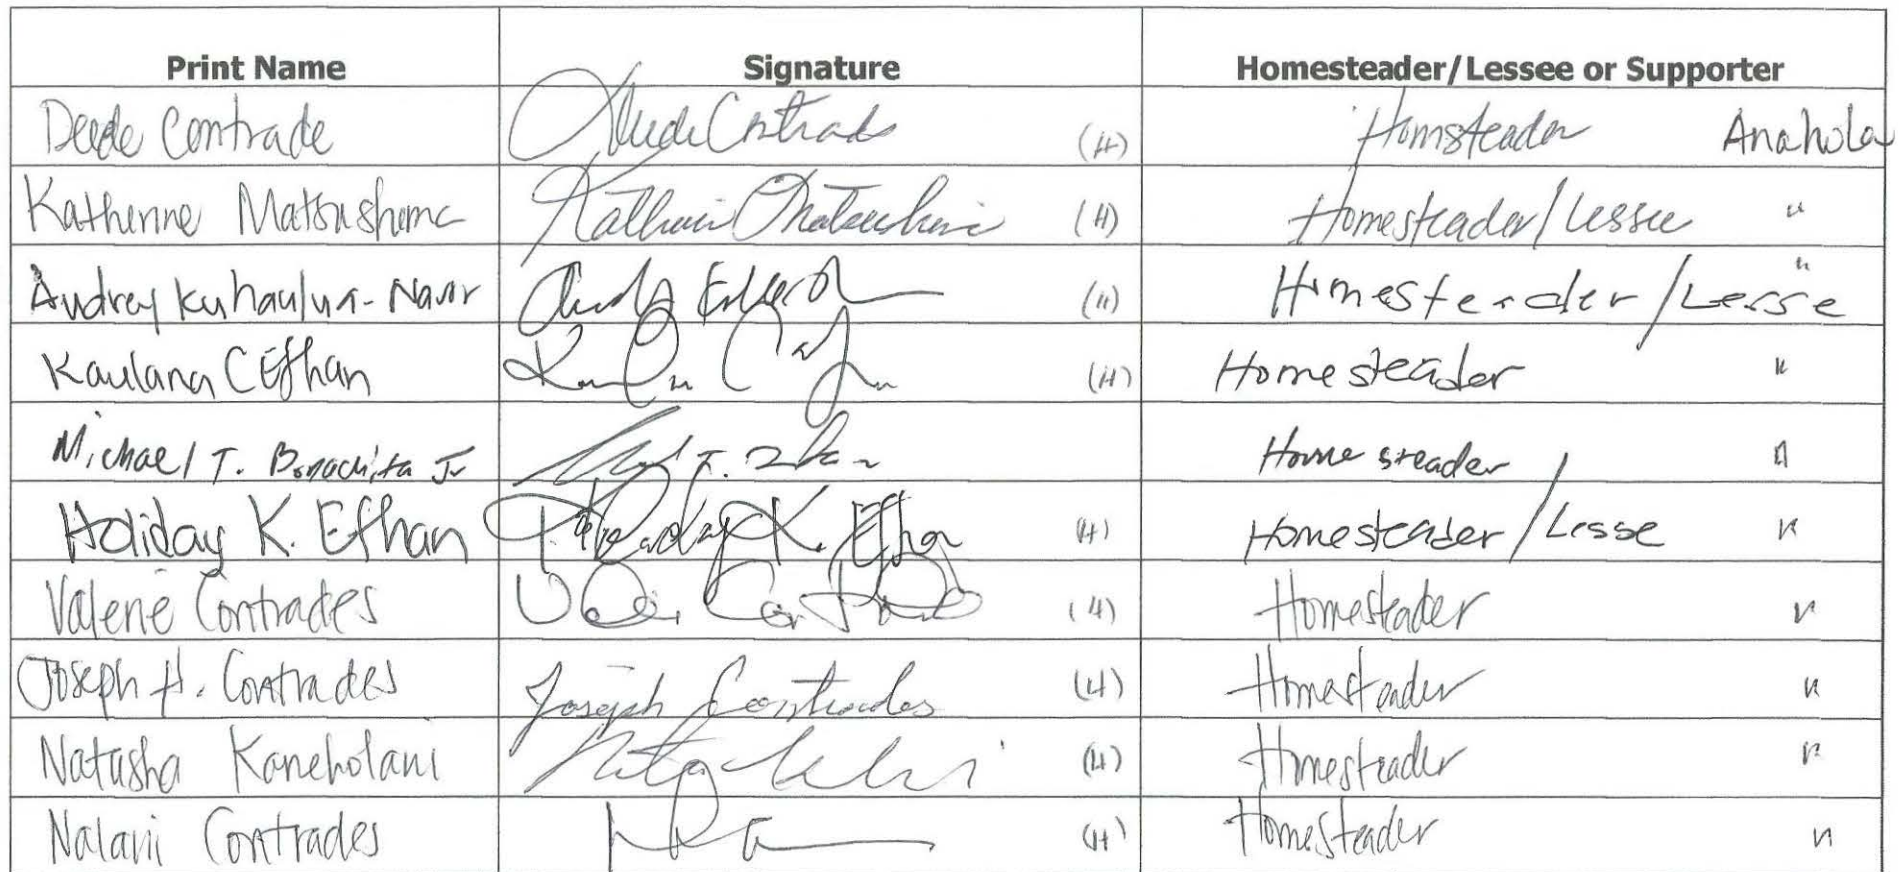 Print Name Signature Homesteader/Lessee or Supporter
Deede Contrade (H) Homsteader Anahola
Katherine Matsushima (H) Homesteader/Lessee "
Audrey Kuhaulua- (H) Homesteader/Lesse "
Kaulana C Efhan (H) Homesteader "
Michael T. Bonachita Jr Homesteader "
Holiday K. Efhan Holiday K. Efhan (H) Homesteader/Lesse "
Valerie Contrades (H) Homesteader "
Joseph H. Contrades Joseph Contrades (H) Homesteader "
Natasha Kaneholani (H) Homesteader "
Nalani Contrades (H) Homesteader "